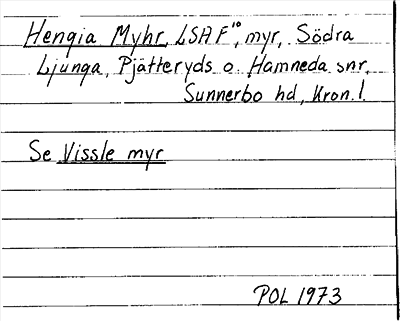 Hengia Myhr, LSA F¹⁰, myr, Södra
Ljunga, Pjätteryds o. Hamneda snr,
Sunnerbo hd, Kron. l.
Se Vissle myr
POL 1973